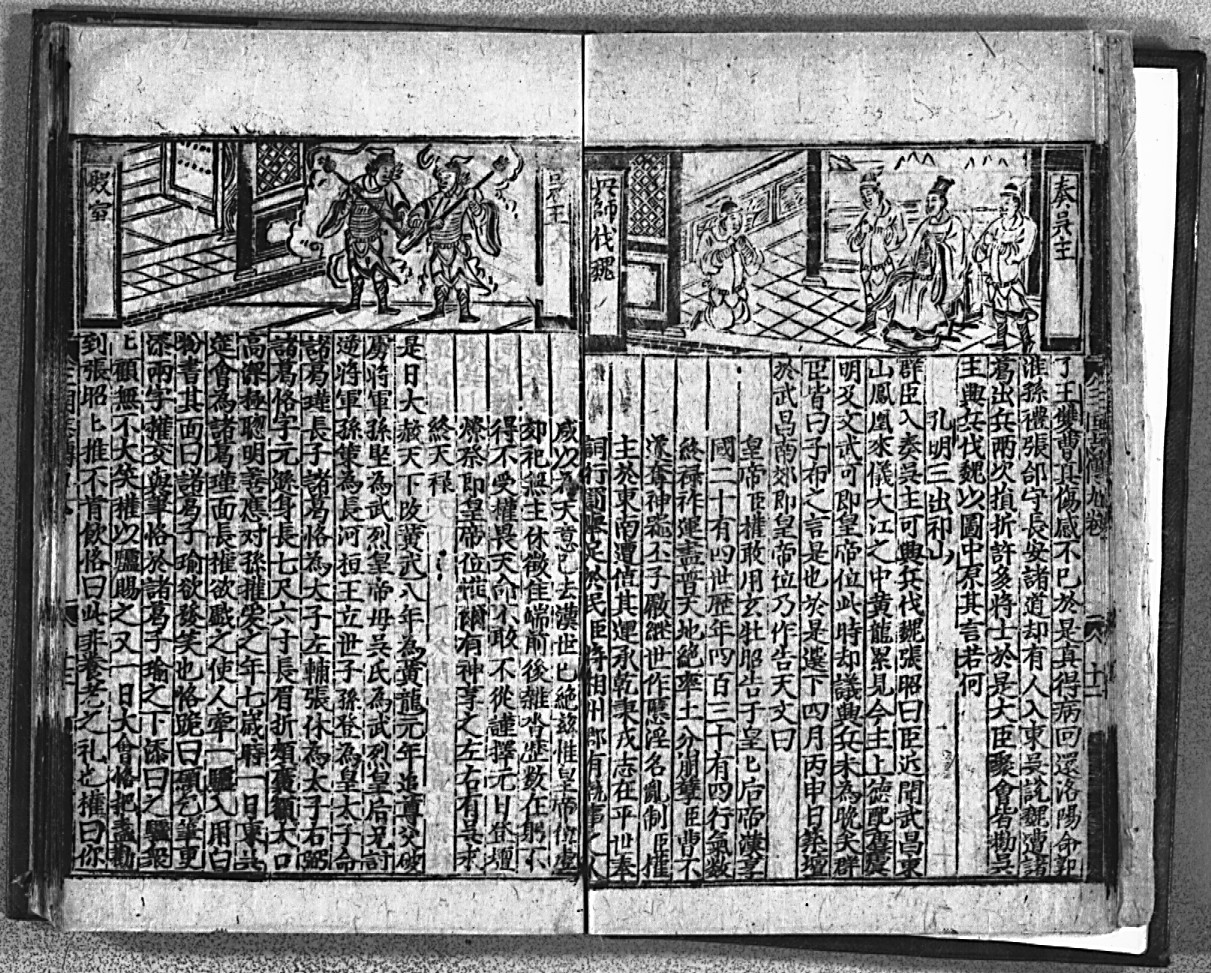 奏吳主
興師伐魏
了王雙曹真傷感不已於是真得病回還洛陽命郭
淮孫禮張郃守長安諸道却有人入東吳說魏遭諸
葛出兵兩次損折許多將士於是大臣聚會皆勸吳
主興兵伐魏以圖中原其言若何
孔明三出祁山
群臣入奏吳主可興兵伐魏張昭曰臣近聞武昌東
山鳳凰來儀大江之中黃龍累見今主上德配唐虞
明及文武可即皇帝位此時却議興兵未為晚矣群
臣皆曰子布之言是也於是選下四月丙申日築壇
於武昌南郊即皇帝位乃作告天文曰
皇帝臣權敢用玄牡昭告于皇皇后帝漢享
國二十有四世歷年四百三十有四行氣數
終祿祚運盡普天地絕率土分崩孽臣曹丕
遂奪神器丕子嚴継世作慝淫名亂制臣權
主於東南遭值其運承乾秉戎志在平世奉
詞行罰舉足於民臣將相州郡有執事之人
咸以為天意已去漢世已絕茲惟皇帝位虛
郊祀無主休徵佳端前後雜沓歷數在躬不
得不受權畏天命不敢不從謹擇元日登壇
燎祭即皇帝位惟爾有神享之左右有吳永
終天祿
是日大赦天下改黃武八年為黃龍元年追尊父破
虜將軍孫堅為武烈皇帝母吳氏為武烈皇后兄討
逆將軍孫策為長河桓王立世子孫登為皇太子命
諸葛瑾長子諸葛恪為太子左輔張休為太子右弼
諸葛恪字元遜身長七尺六寸長眉折頞廣額大口
高深極聰明善應对孫權愛之年七歲時一日東吳
筵會為諸葛瑾面長權欲戲之使人牽一驢入用白
粉書其面曰諸葛子瑜欲發笑也恪跪曰願乞筆更
添兩字權交與筆恪於諸葛子瑜之下添曰之驢衆
上顧無不大笑權以驢賜之又一日大會恪把盞勸
到張昭上推不肯飲恪曰此非養老之礼也權曰你